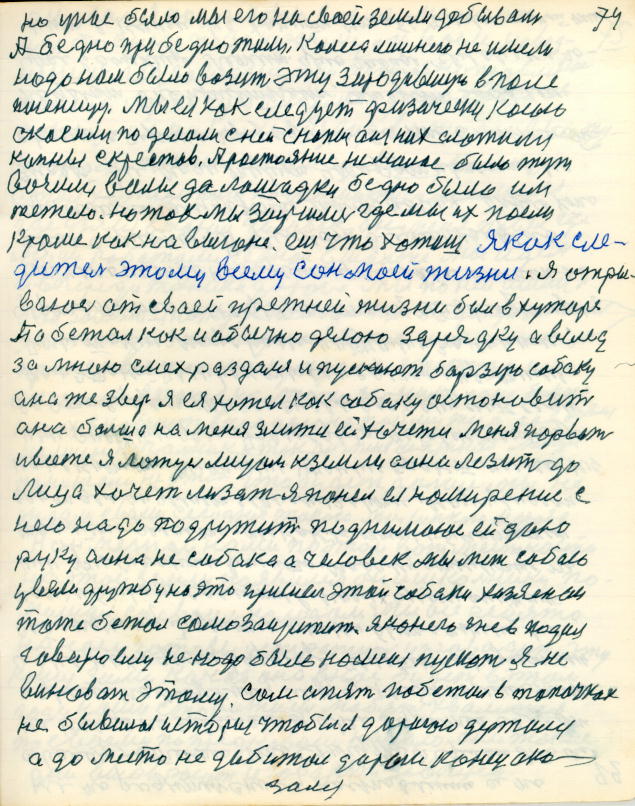 но уже было мы его на своей земли добывали 74
А бедно при бедно жили. Колеса лишнего не имели
надо нам было возит эту зародившую в поле
пшеницу. Мы ея как следует физически косою
скосили поделали с ней снопы а из них сложили
копны и крестов. А растояние не малое было тут
волами да лошадки бедно было им
тяжело. но так мы заучили где мы их поем
Краше как на выгоне. еш что хотиш Я как сле-
дител этому всему сон моей жизни. Я отры-
ваюс от своей прежней жизни был в хуторе
Побежал как и обычно делаю зарядку а вслед
за мною смех раздался и пускают барзую собаку
ана же звер я ея хотел как собаку остоновит
ана больше на меня злится ей хочется меня порват
и я ложус лицом к земли а она лезит до
лица хочет лизат я понял ея номирение с
нею надо подружит поднимаюс ей даю
руку а она не собака а человек мы меж собою
увели дружбу но это пришел этой собаки хазяен он
тоже бежал самозащитит. я на него гнев поднял
говорю ему не надо было на меня пускат я не
виноват этому. Сам опят побежал в тапочках
не бывшая история чтобы я дорогою держалс
а до место не добижал дороги конец ока-
залс